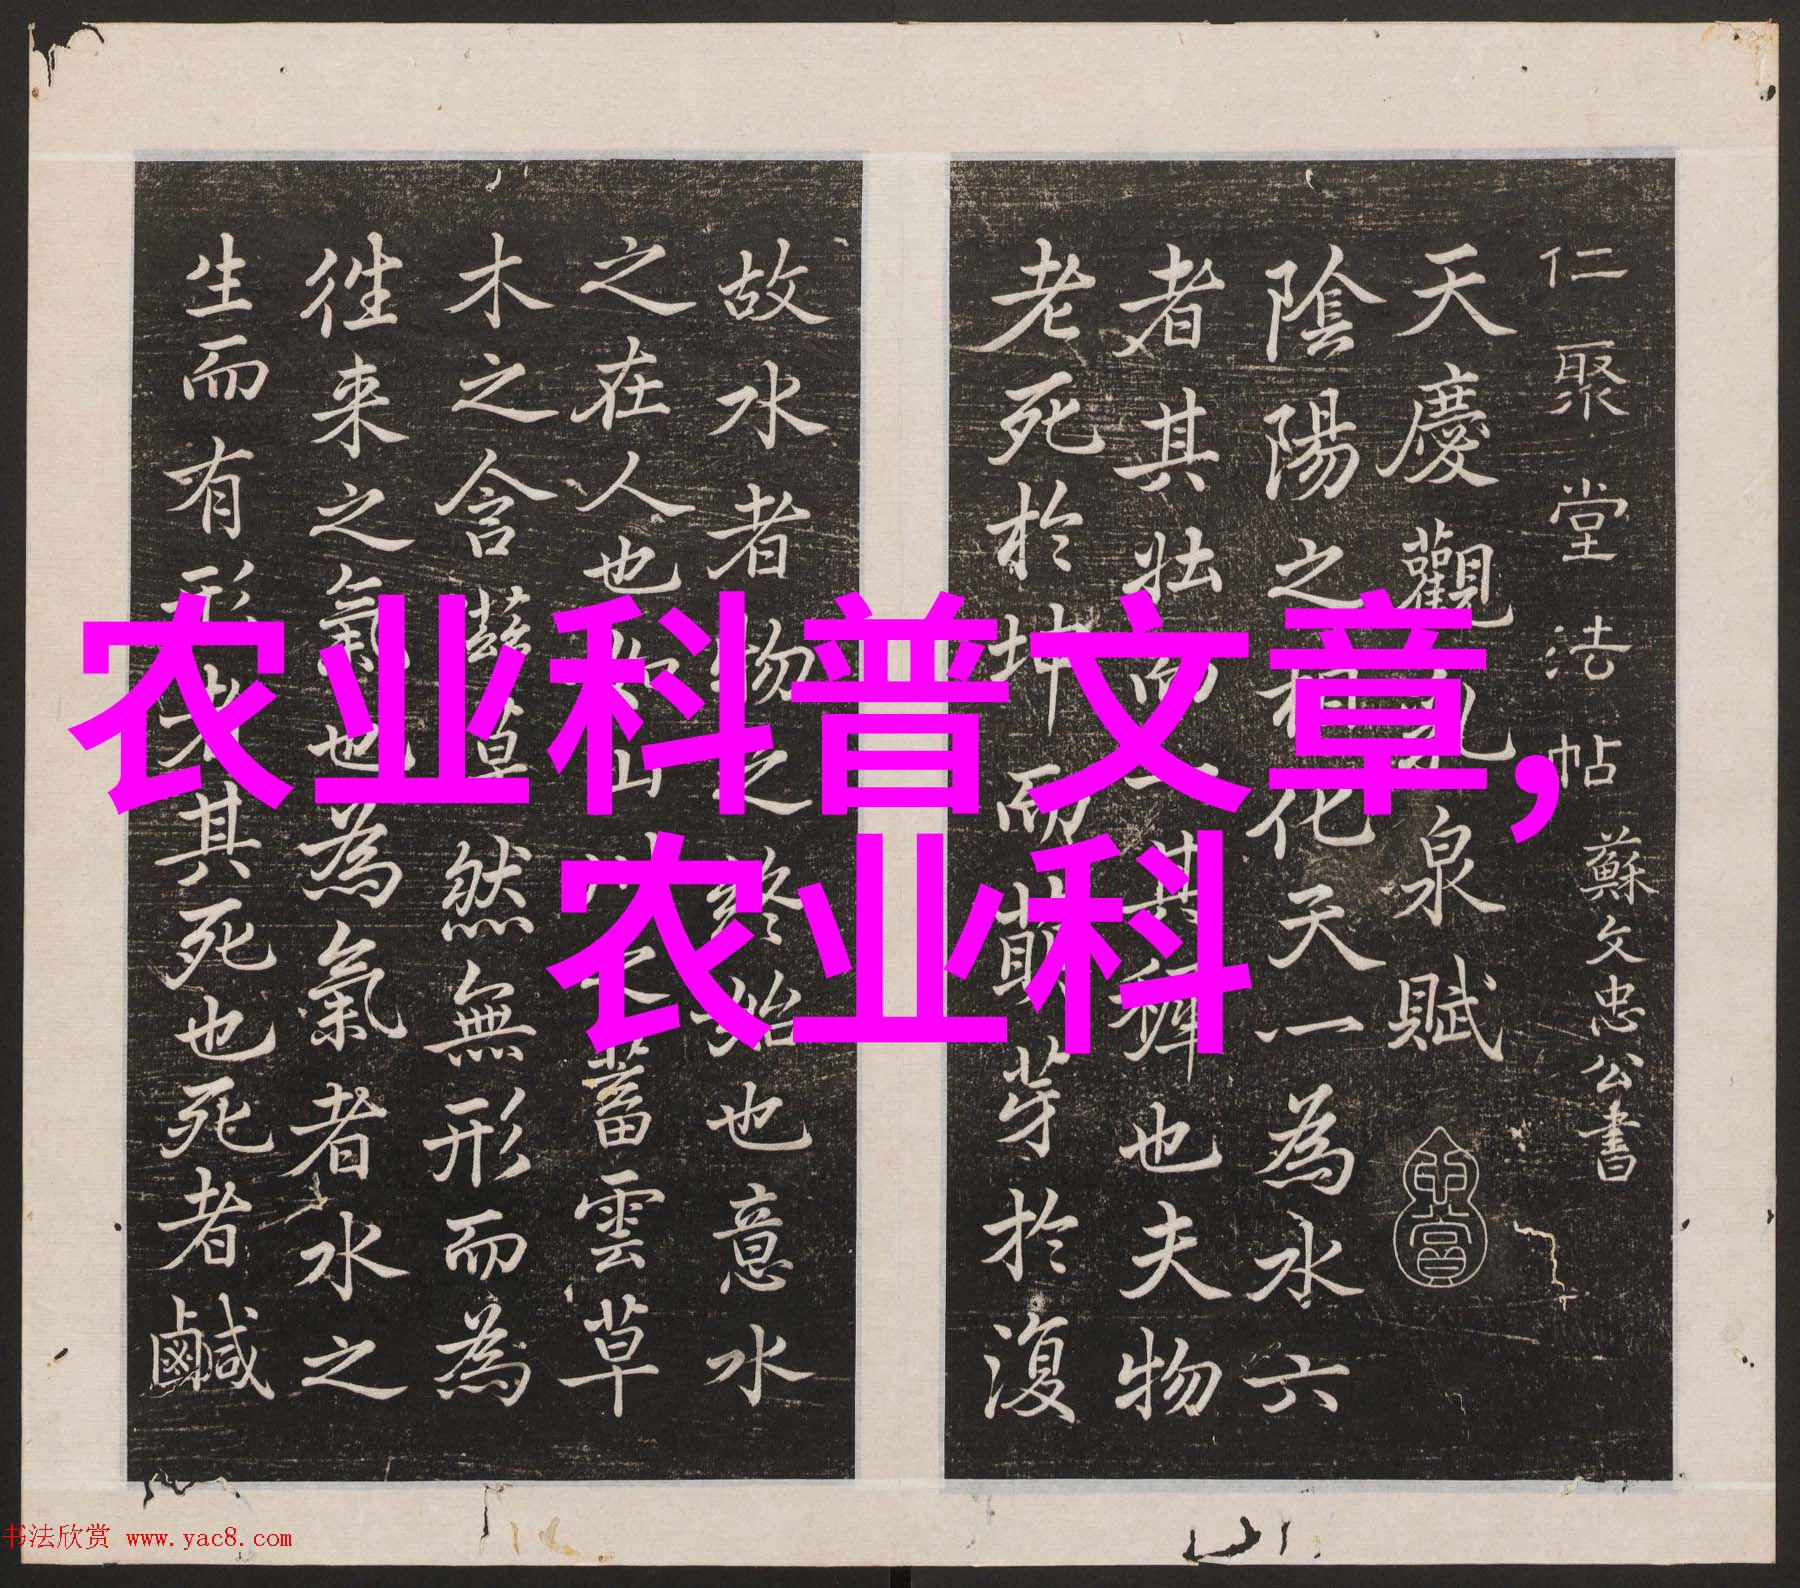 仁聚堂法帖 蘇文忠公書
天慶觀乳泉賦
陰陽之相化天一為水六
者其壯而一其稺也夫物
老死於坤而萌芽於復
故水者物之終始也意水
之在人也如山川之蓄雲草
木之含滋草然無形而為
徃来之氣也為氣者水之
生而有形者其死也死者鹹
农业科普文章,
农业科
书法欣赏 www.yac8.com